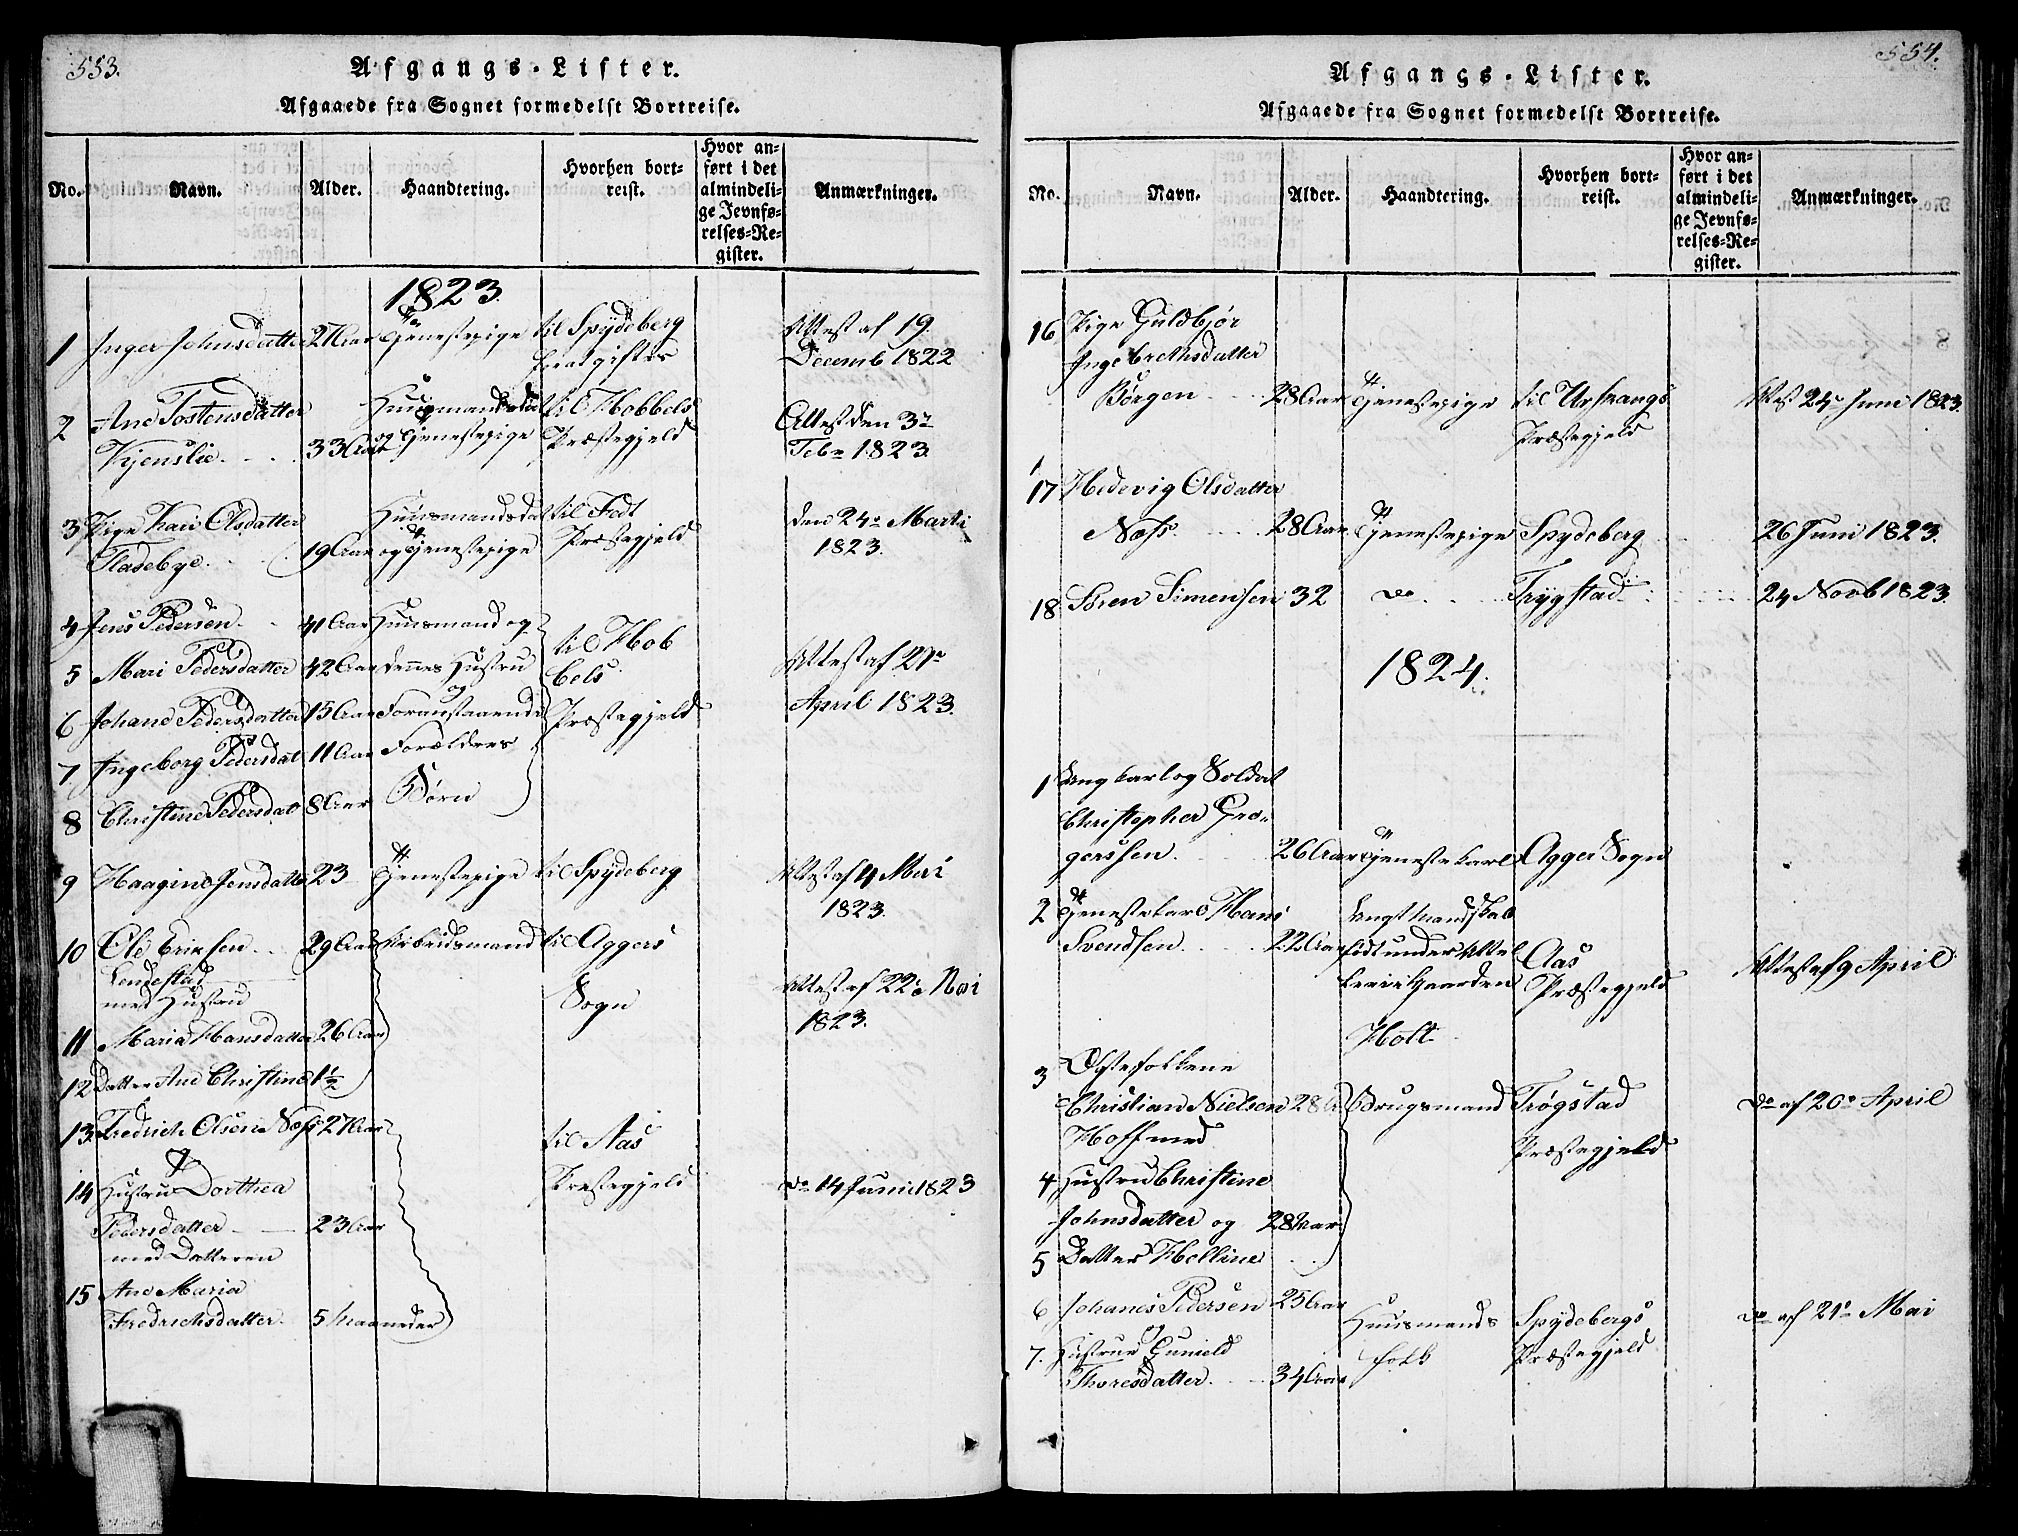 553.
Afgangs-Lister.
Afgaaede fra Sognet formedelst Bortreise.
No. Navn. Alder. Haandtering. Hvorhen bortreist. Hvor anført i det almindelige Jevnførelses-Register. Anmærkninger.
1823.
1 Inger Johnsdatter 27 Aar Tjenestepige til Spydeberg Attest af 19.
Decemb 1822
2 Ane Tostensdatter Huusmandsdat til Hobbels Attest den 3die
33 Aar og Tjenestepige Præstegjeld Febr 1823.
3 Pige Kari Olsdatter Huusmandsdat til Fedt den 24de Marti
Fladebye. 19 Aar og Tjenestepige Præstegjeld 1823.
4 Jens Pedersen 41 Aar Huusmand og til Hob
5 Mari Pedersdatter 42 Aar dennes Hustru bels Attest af 21de
6 Johane Pedersdatter 15 Aar Foranstaaende Præstegjeld April 1823.
7 Ingeborg Pedersdat 11 Aar Forældres
8 Christine Pedersdat 8 Aar Børn
9 Haagine Jensdatter 23 Tjenestepige til Spydeberg Attest af 4 Mai
1823.
10 Ole Eriksen 29 Aar Arbeidsmand til Aggers
med Hustru Sogn Attest af 22de Mai
11 Maria Hansdatter 26 Aar 1823.
12 Datter Ane Christine 1 1/2
13 Fredrich Olsen Næss 27 Aar til Aas
14 Hustru Dorthea Præstegjeld do 14 Juni 1823
Pedersdatter 23 Aar
med Datteren
15 Ane Maria
Fredrichsdatter. 5 Maaneder
554.
Afgangs-Lister.
Afgaaede fra Sognet formedelst Bortreise.
No. Navn. Alder. Haandtering. Hvorhen bortreist. Hvor anført i det almindelige Jevnførelses-Register. Anmærkninger.
16 Pige Guldbjør
Ingebrethsdatter
Børgen 28 Aar Tjenestepige til Urskougs Attest 24de Juni 1823.
Præstegjeld
17 Hedevig Olsdatter
Næss. 28 Aar Tjenestepige Spydeberg 26 Juni 1823.
18 Søren Simensen 32 do Trygstad 24 Novb 1823.
1824.
1 Ung karl og Soldat
Christopher Gre-
gerssen. 26 Aar Tjenestekarl Agger Sogn
2 Tjenestekarl Hans
Svendsen 22 Aar født under Aas Attest af 9 April
Gaarden Præstegjeld
Holt
3 Ægtefolkene
Christian Nielsen 28 Aar Brugsmand Trøgstad do af 20de April
Hoff med Præstegjeld
4 Hustru Christine
Johnsdatter og 28 Aar
5 Datter Helline
6 Johanes Pedersen 25 Aar Huusmands Spydebergs do af 21de Mai
7. Hustrue Gunild folk Præstegjeld
Thoresdatter. 34 Aar